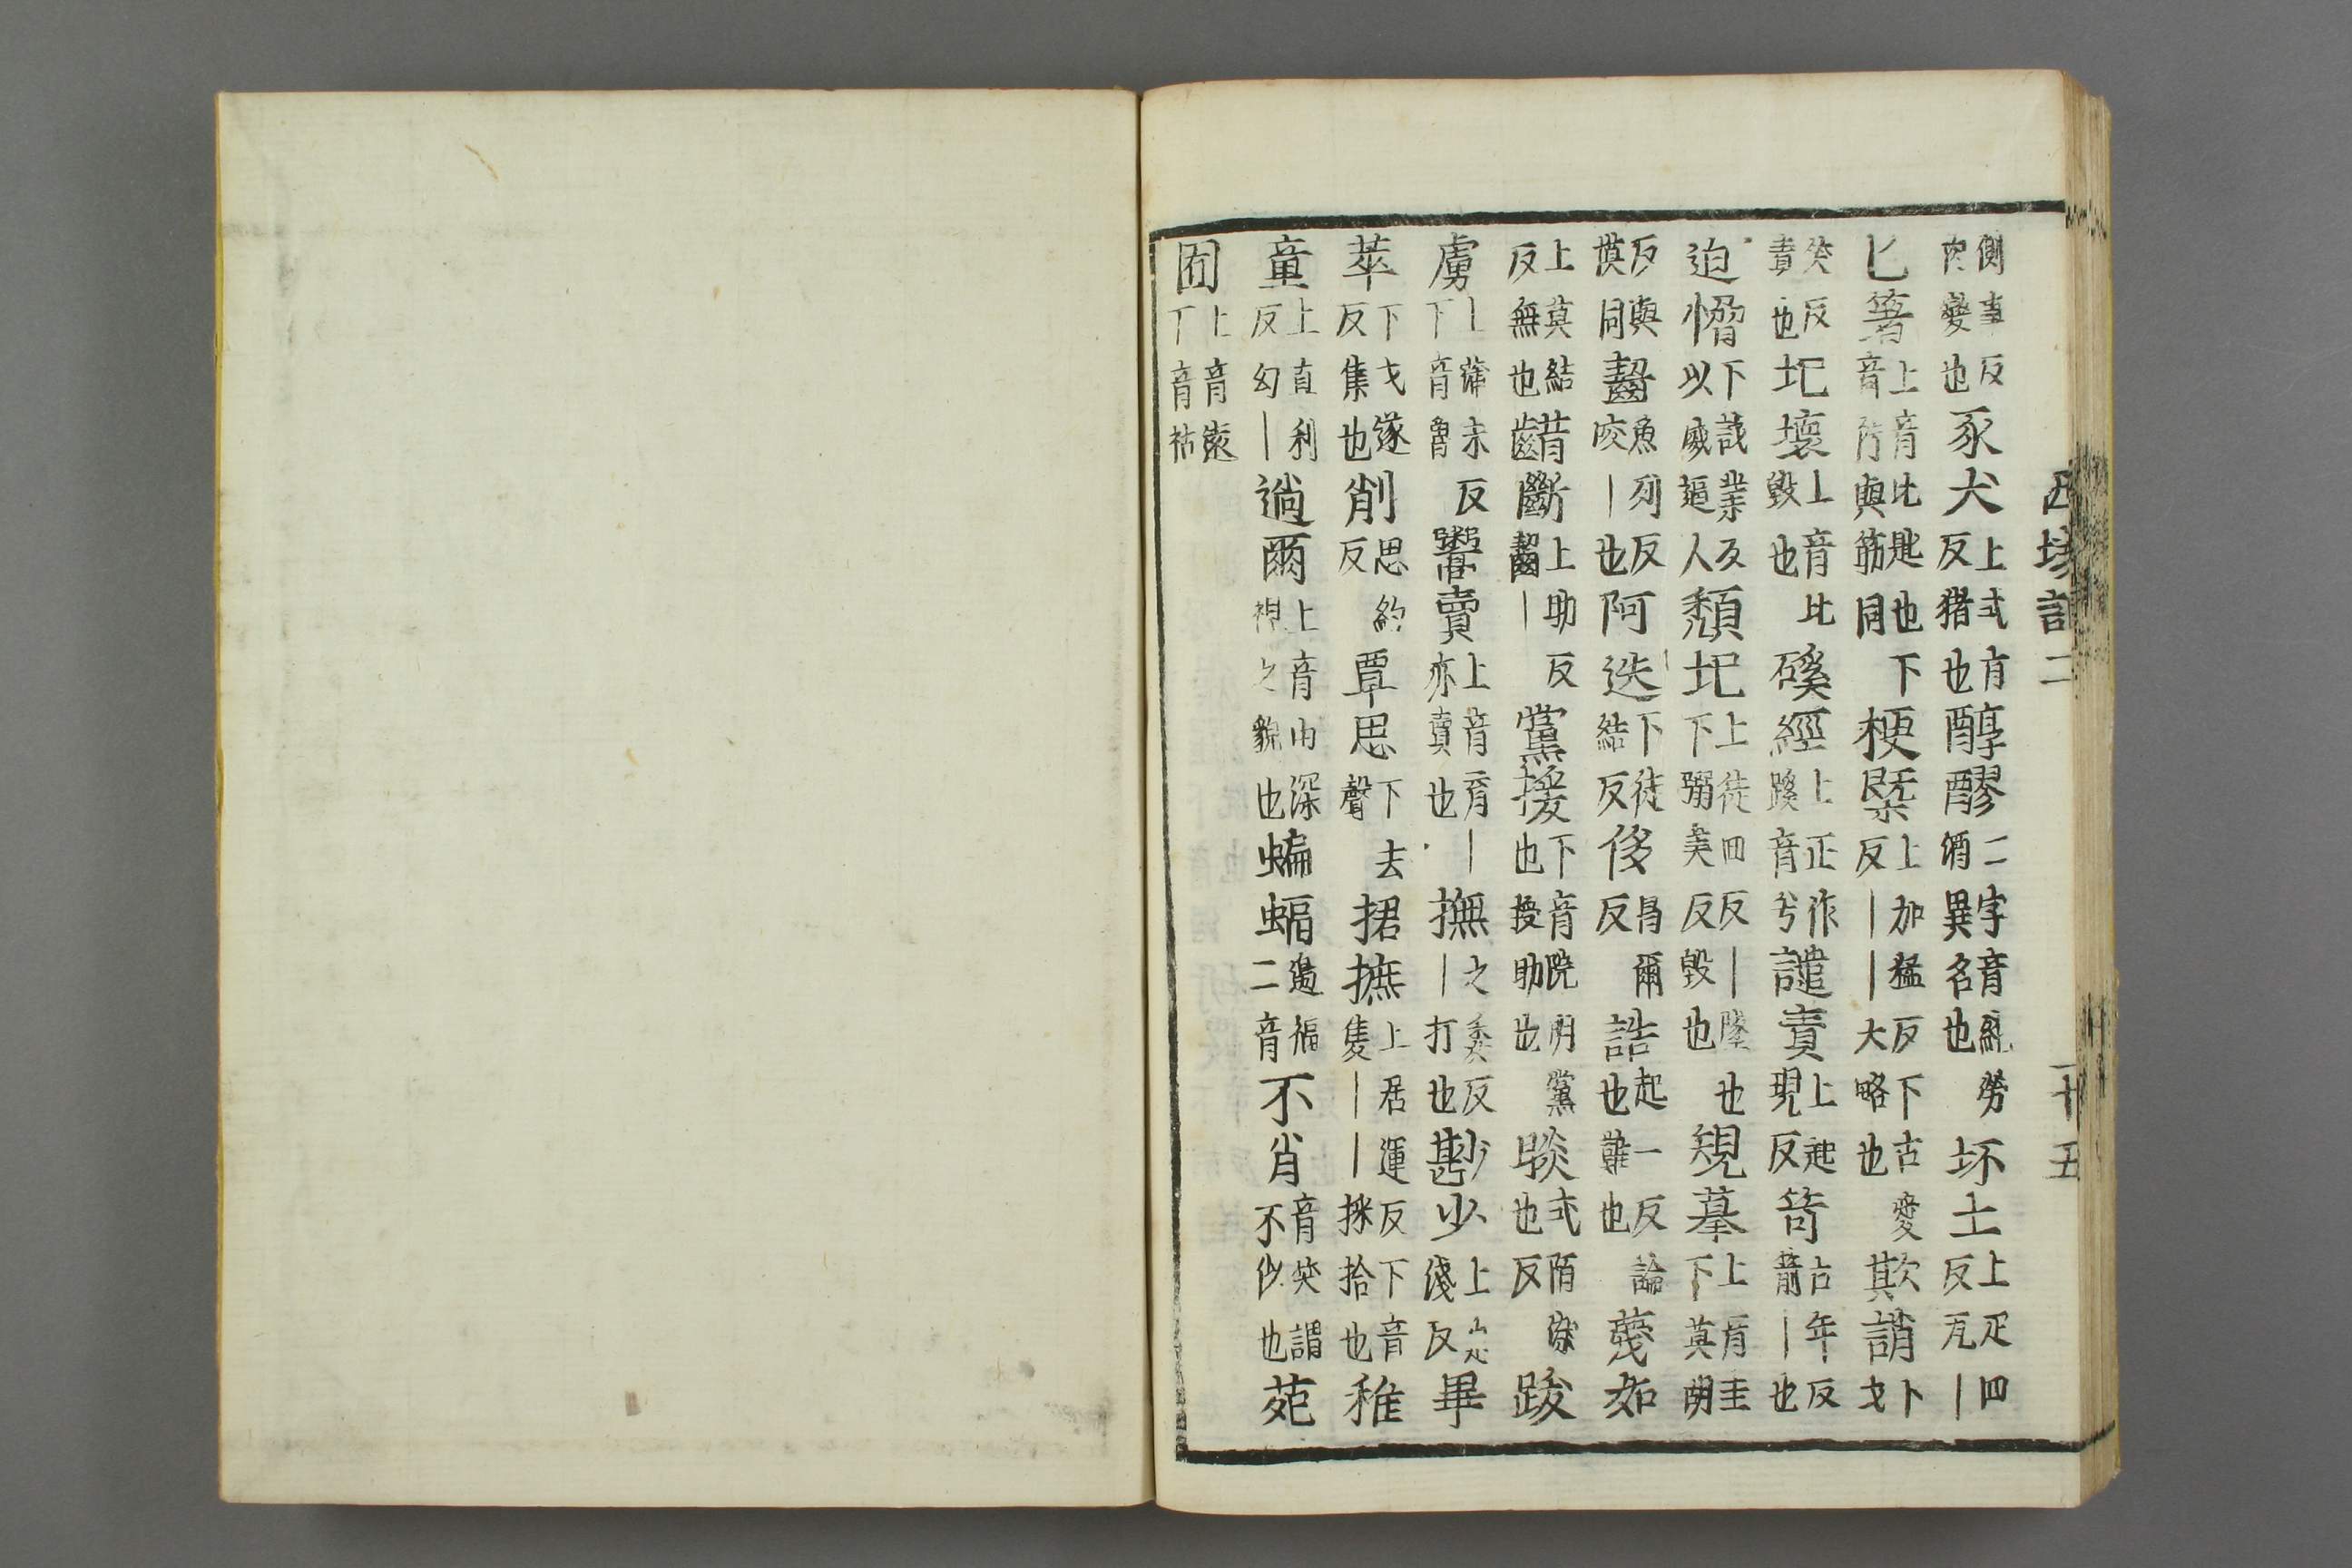 側事反肉變也豕犬上式有反猪也醇醪二字音純勞酒異名也坏土上疋四反瓦｜
匕箸上音比匙也下音阝與筯同梗槩上加猛反下古愛反｜｜大略也欺誚下才
笑反責也圮壞上音比毀也磎經上正作蹊音兮譴責上起現反笴古年反箭｜也
迫愶下㦸業反以威逼人頽圮上徒回反｜墜也下弼美反毀也䂓摹上音圭下莫胡
反與摸同齧魚列反咬｜也阿迭下徒結反侈昌爾反詰起一反論難也也蔑如
上莫結反無也齰斷上助反齧｜黨援下音院朋黨也授助也睒式陌除也反踆
虜上蒲末反下音魯鬻賣上音育｜亦賣也撫之羑反｜打也尠少上心淺反畢
萃下才遂反集也削思約反覃思下去聲捃摭上居運反下音隻｜｜採拾也稚
童上直利反幻｜逌爾上音由深視之貌也蝙蝠邊福二音不肖音笑謂不似也苑
囿上音遠下音祐
西域記二 十五